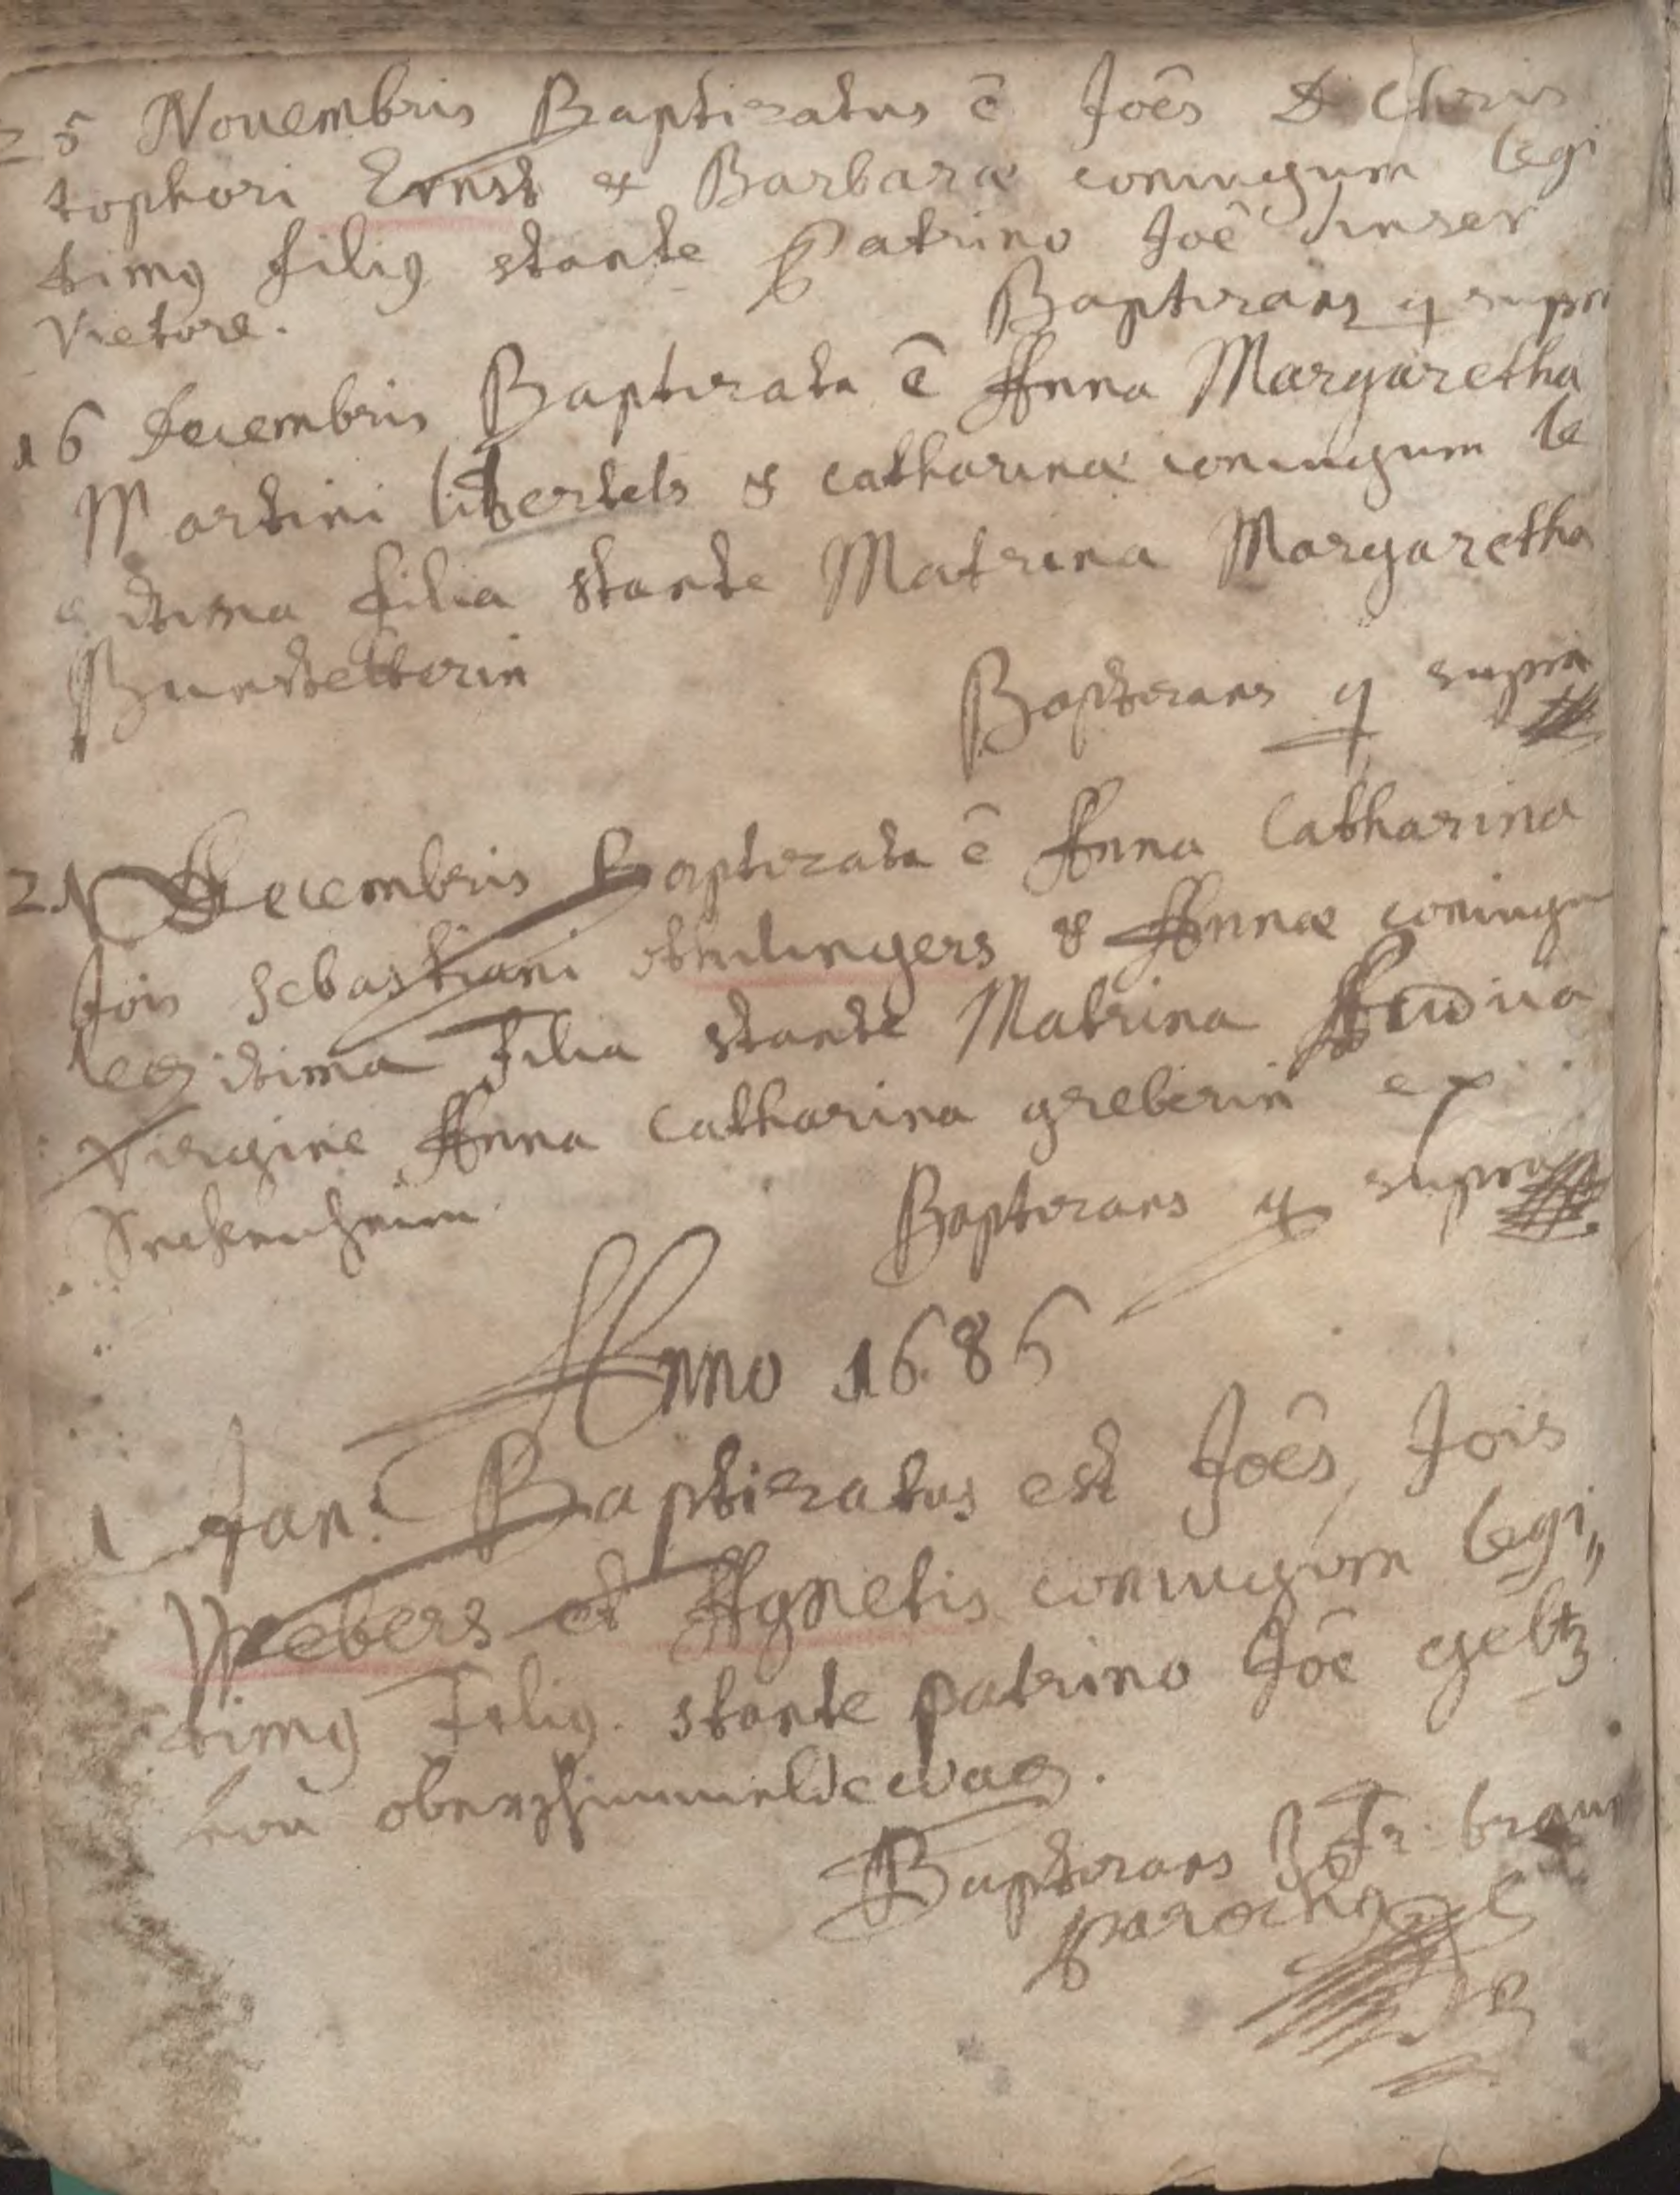 25 Novembris Baptizatus ē Joēs D Chris
tophori Ernst & Barbaræ coniugum legi
timg filig stante Patrino Joē
Vietore.
Baptizans q supra
16 Decembris Baptizata ē Anna Margaretha
Martini libertels & Catharinæ coniugum le
itima filia stante Matrina Margaretha
Baptizans q supra
21 Decembris Baptizata ē Anna Catharina
Jois Sebastiani & Annæ coniugu
legitima Filia stante Matrina
Virgine Anna Catharina greberin ex
Baptizans q supra
Anno 1686
1 Jan: Baptizatus est Joēs, Jois
Webers et Agnetis coniugum legi,,
timg Filig. stante patrino Joē geltz
Baptizans Fr. braun
parochg